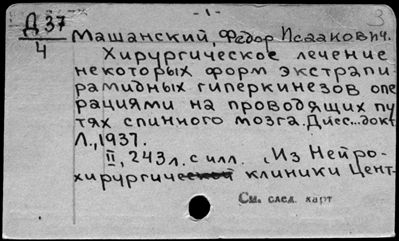 - 1 -
3
Д 37
4
Машанский, Федор Исаакович.
Хирургическое лечение
некоторых форм экстрапи-
рамидных гиперкинезов опе
рациями на проводящих пу
тях спинного мозга. Дисс... докт
Л., 1937.
II, 243 л. с илл. (Из Нейро-
хирургической клиники Цент-
См. след. карт